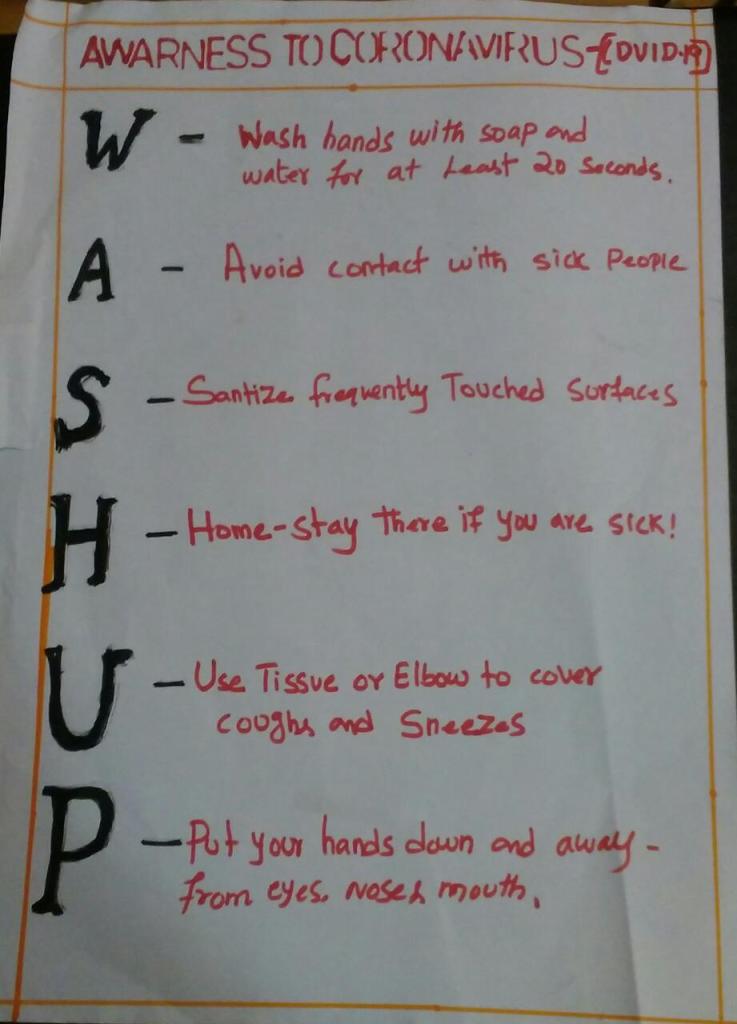 AWARNESS TO CORONAVIRUS-[COVID-19]
W - Wash hands with soap and
water for at Least 20 Seconds.
A - Avoid contact with sick People
S - Santize frequently Touched Surfaces
H - Home-stay there if you are sick!
U - Use Tissue or Elbow to cover
coughs and Sneezes
P - Put your hands down and away -
from eyes. Nose & mouth.